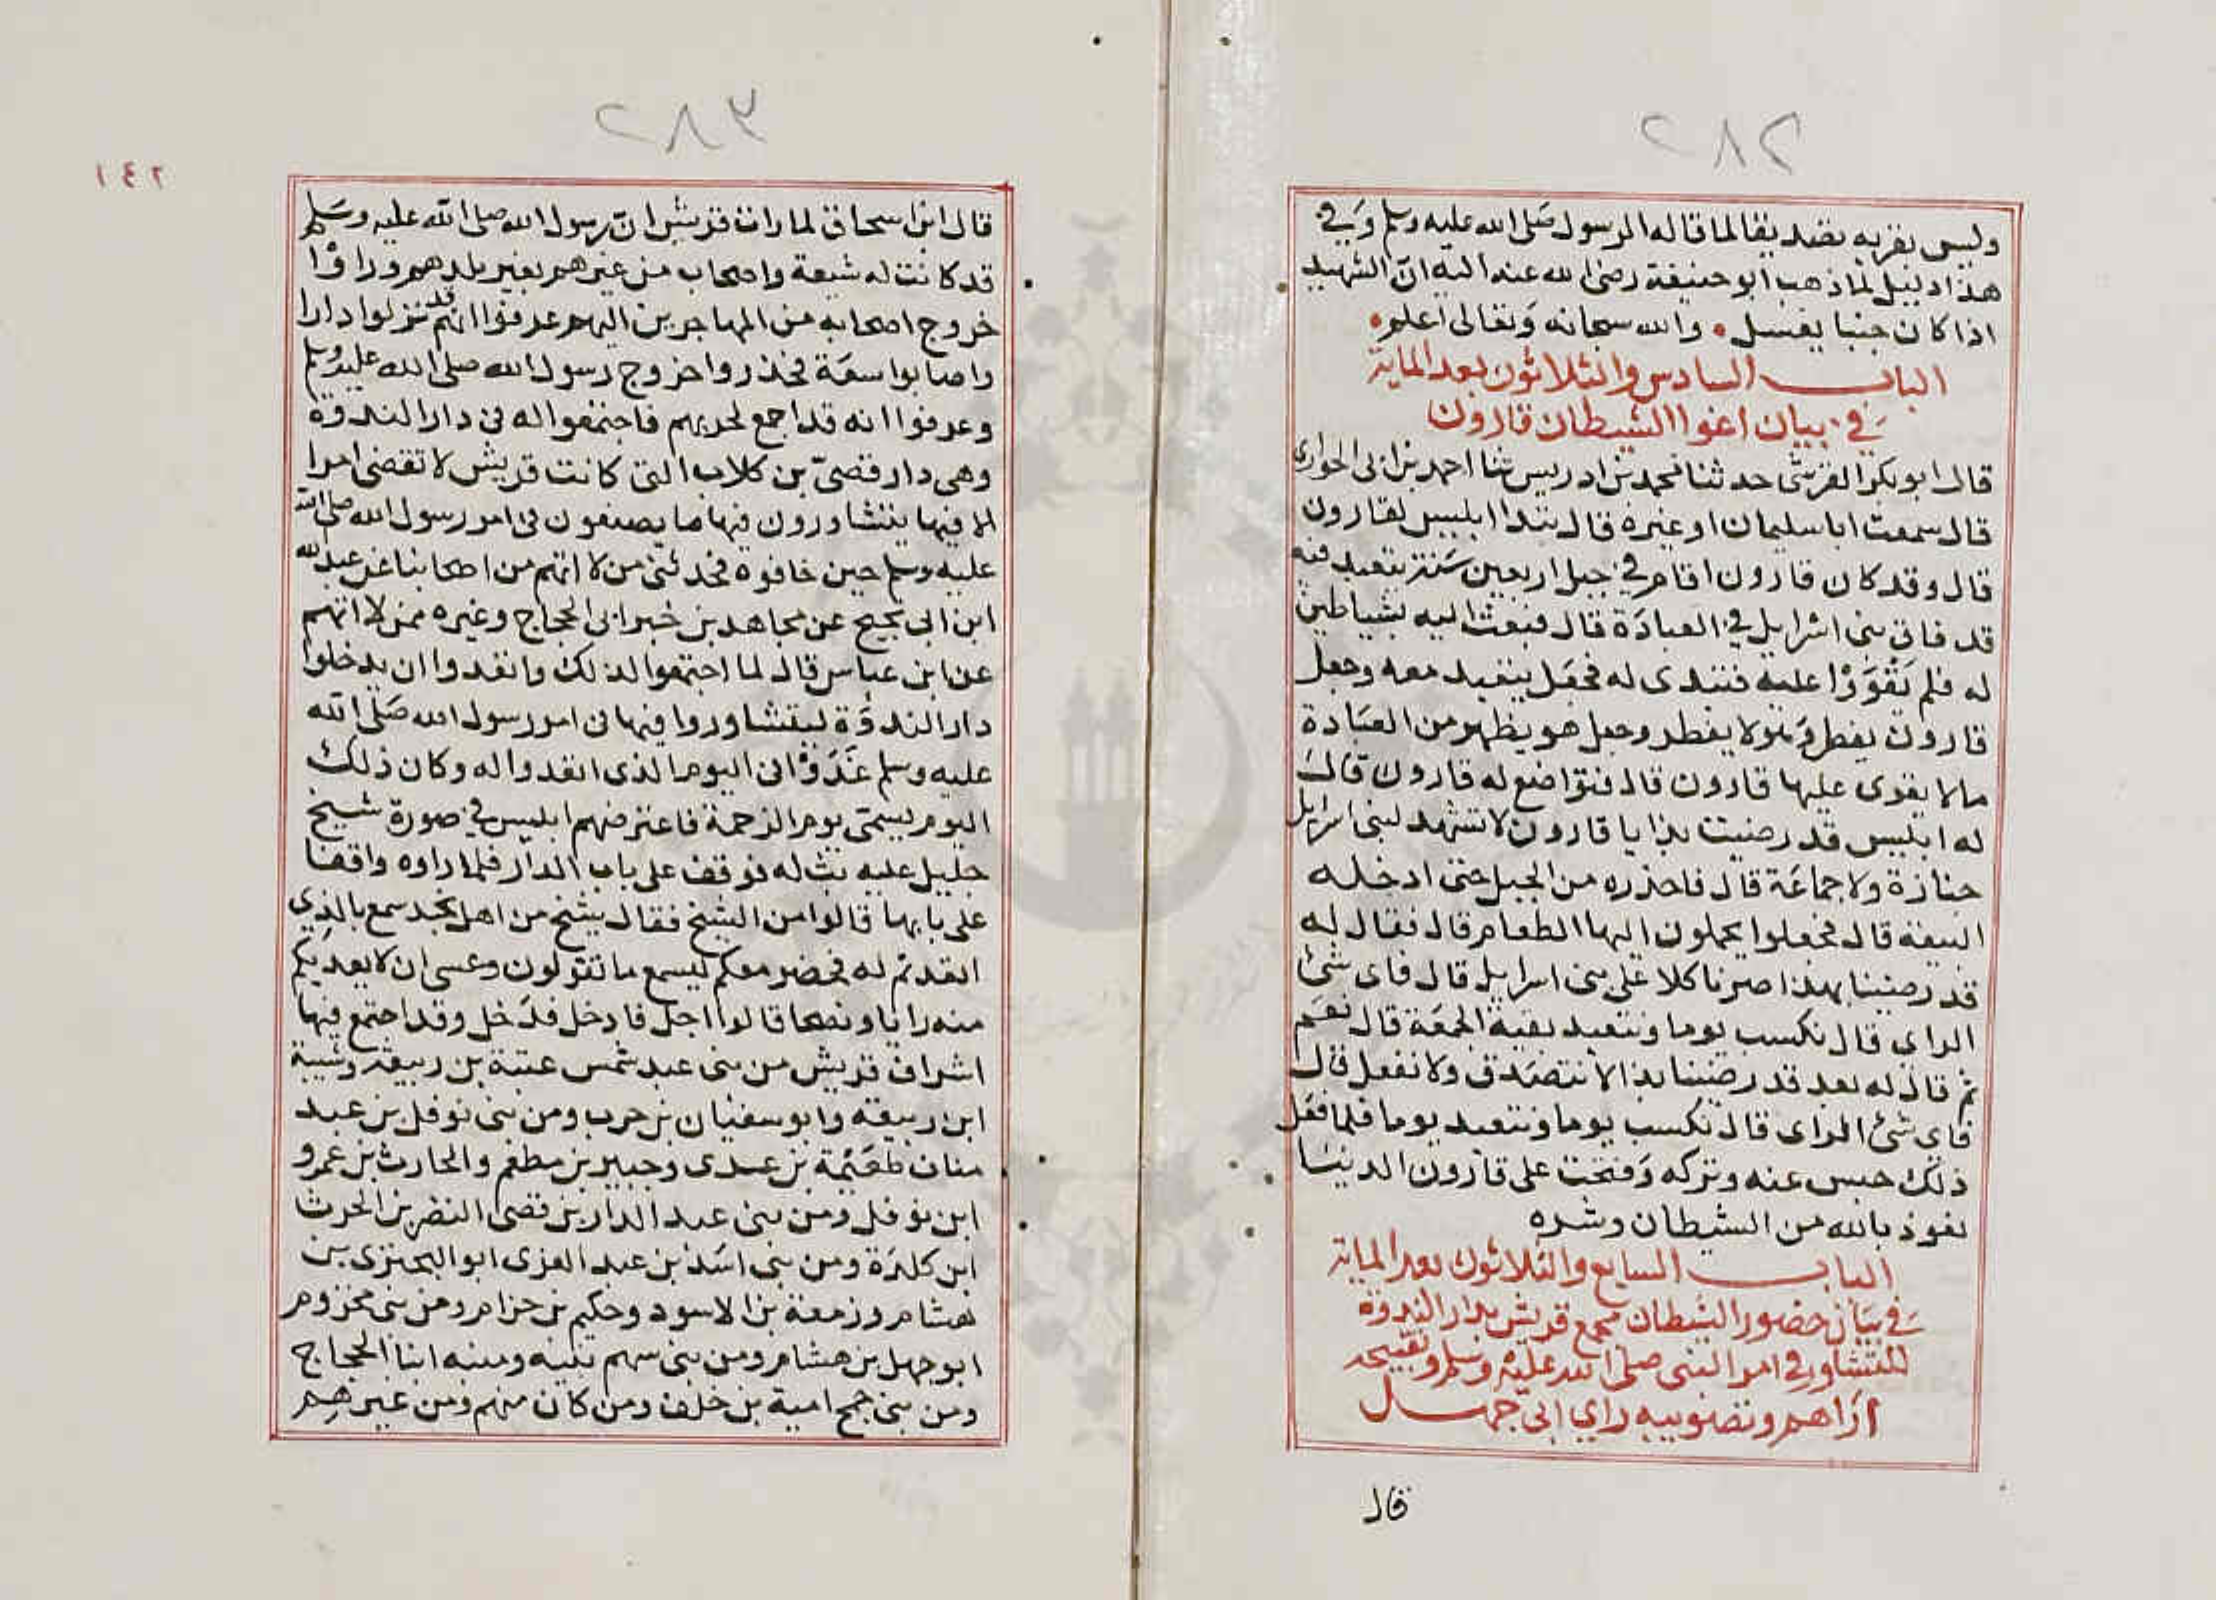 ٢٨٢
وليس نعز به تصديقا لما قاله الرسول صلى الله عليه وسلم وَفي
هذا دليل لما ذهب ابو حنيفة رضى الله عنه اليه انّ الشهيد
اذا كان جنبا يغسل • والله سبحانه وَتعالى اعلم •
الباب السادس والثلاثون بعد الماية
في بيان اغوا الشيطان قارون
قال ابو بكر القرشى حدثنا محمد بن ادريس ثنا احمد بن ابى الحوارى
قال سمعت ابا سليمان او غيره قال تبدا ابليس لقارون
قال وقد كان قارون اقام في جبل اربعين سنة يتعبد فيه
قد فاق بنى اسرايل في العبادَة قال فبعث اليه بشياطين
له فلم يَقْوَوْا عليه فتبدى له فجعل يتعبد معه وجعل
قارون يفطر وَهو لا يفطر وجعل هو يظهر من العبَادة
مالا يقوى عليها قارون قال فتواضع له قارون قال
له ابليس قد رضيت بذا يا قارون لا تشهد لبنى اسرايل
جنازة ولا جماعَة قال فاحذره من الجبل حتى ادخله
البيعة قال فجعلوا يحملون اليها الطعام قال فقال له
قد رضينا بهذا صرنا كلا على بنى اسرايل قال فاى شئ
الراى قال نكسب يوما ونتعبد بقية الجمعَة قال نعم
ثم قال له بعد قد رضينا بذا لا نتصدق ولا نفعل قال
فاى شئ الراى قال نكسب يوما ونتعبد يوما فلما فعَل
ذلك حبس عنه وتركه وَفتحت على قارون الدنيَا
نعوذ بالله من الشيطان وشره
الباب السابع والثلاثون بعد الماية
في بيَان حضور الشيطان مجمع قريش بدار الندوة
للتشاور في امر النبى صلى الله عليه وسلم وتقبيحه
ارَاهم وتصويبه راي ابى جهل
قال
٢٨٣
١٤٢
قال ابن اسحاق لما رات قريش انّ رسول الله صلى الله عليه وسَلم
قد كانت له شيعة واصحاب من غيرهم بغير بلدهم وراوْا
خروج اصحابه من المهاجرين اليهم عرفوا انهم قد نزلوا دارا
واصابوا سعَة فحذروا خروج رسول الله صلى الله عليه وسلم
وعرفوا انه قد اجمع لحربهم فاجتمعوا له فى دار الندوة
وهى دار قصىّ بن كلاب التى كانت قريش لا تقضى امرا
الا فيها يتشاورون فيها ما يصنعون فى امر رسول الله صلى الله
عليه وسلم حين خافوه فحدثنى من لا اتهم من اصحابنا عن عبد الله
ابن ابى نجيح عن مجاهد بن جبر ابى الحجاج وغيره ممن لا اتهم
عن ابن عباس قال لما اجتمعوا لذلك واتعدوا ان يدخلوا
دار الندوَة ليتشاوروا فيها فى امر رسول الله صَلى الله
عليه وسلم غَدَوْا فى اليوم الذى اتعدوا له وكان ذلك
اليوم يسمّى يوم الزحمة فاعترضهم ابليس في صورة شيخ
جليل عليه بث له فوقف على باب الدار فلما راوه واقفا
على بابها قالوا من الشيخ فقال شيخ من اهل نجد سمع بالذى
اتعدتم له فحضر معكم ليسمع ما تقولون وعسى ان لا يعديكم
منه رايا ونصحا قالوا اجل فادخل فدَخل وقد اجتمع فيها
اشراف قريش من بنى عبد شمس عتبة بن ربيعة وشيبة
ابن ربيعة وابو سفيان بن حرب ومن بنى نوفل بن عبد
مناف طعَيْمة بن عدى وجبير بن مطعم والحارث بن عمرو
ابن نوفل ومن بنى عبد الدار بن قصى النضر بن الحرث
ابن كلدَة ومن بنى اسَد بن عبد العزى ابو البحترى بن
هشام وزمعة بن الاسود وحكيم بن حزام ومن بنى مخزوم
ابو جهل بن هشام ومن بنى سهم نبيه ومنبه ابنا الحجاج
ومن بنى جمح امية بن خلف ومن كان منهم ومن غيرهم